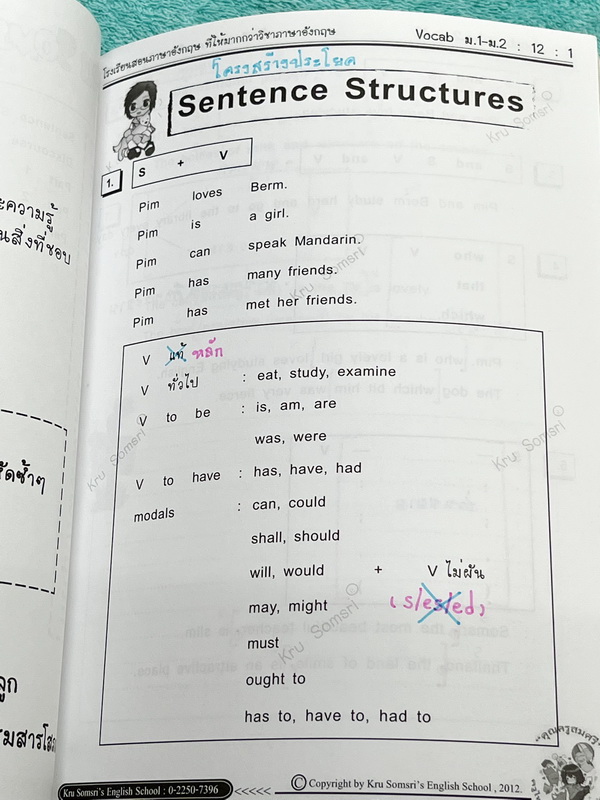 โรงเรียนสอนภาษาอังกฤษ ที่ให้มากกว่าวิชาภาษาอังกฤษ
Vocab ม.1-ม.2 : 12 : 1
โครงสร้างประโยค
Sentence Structures
1. S + V
Pim loves Berm.
Pim is a girl.
Pim can speak Mandarin.
Pim has many friends.
Pim has met her friends.
V แท้ หลัก
V ทั่วไป : eat, study, examine
V to be : is, am, are
was, were
V to have : has, have, had
modals : can, could
shall, should
will, would + V ไม่ผัน
may, might (s/es/ed)
must
ought to
has to, have to, had to
Kru Somsri
Kru Somsri
Kru Somsri
Kru Somsri
Kru Somsri
ความรู้
นสิ่งที่ชอบ
ซ้ำๆ
ลูก
Kru Somsri's English School : 0-2250-7396 <<<<<
© Copyright by Kru Somsri's English School , 2012.
คุณครูสมศรี